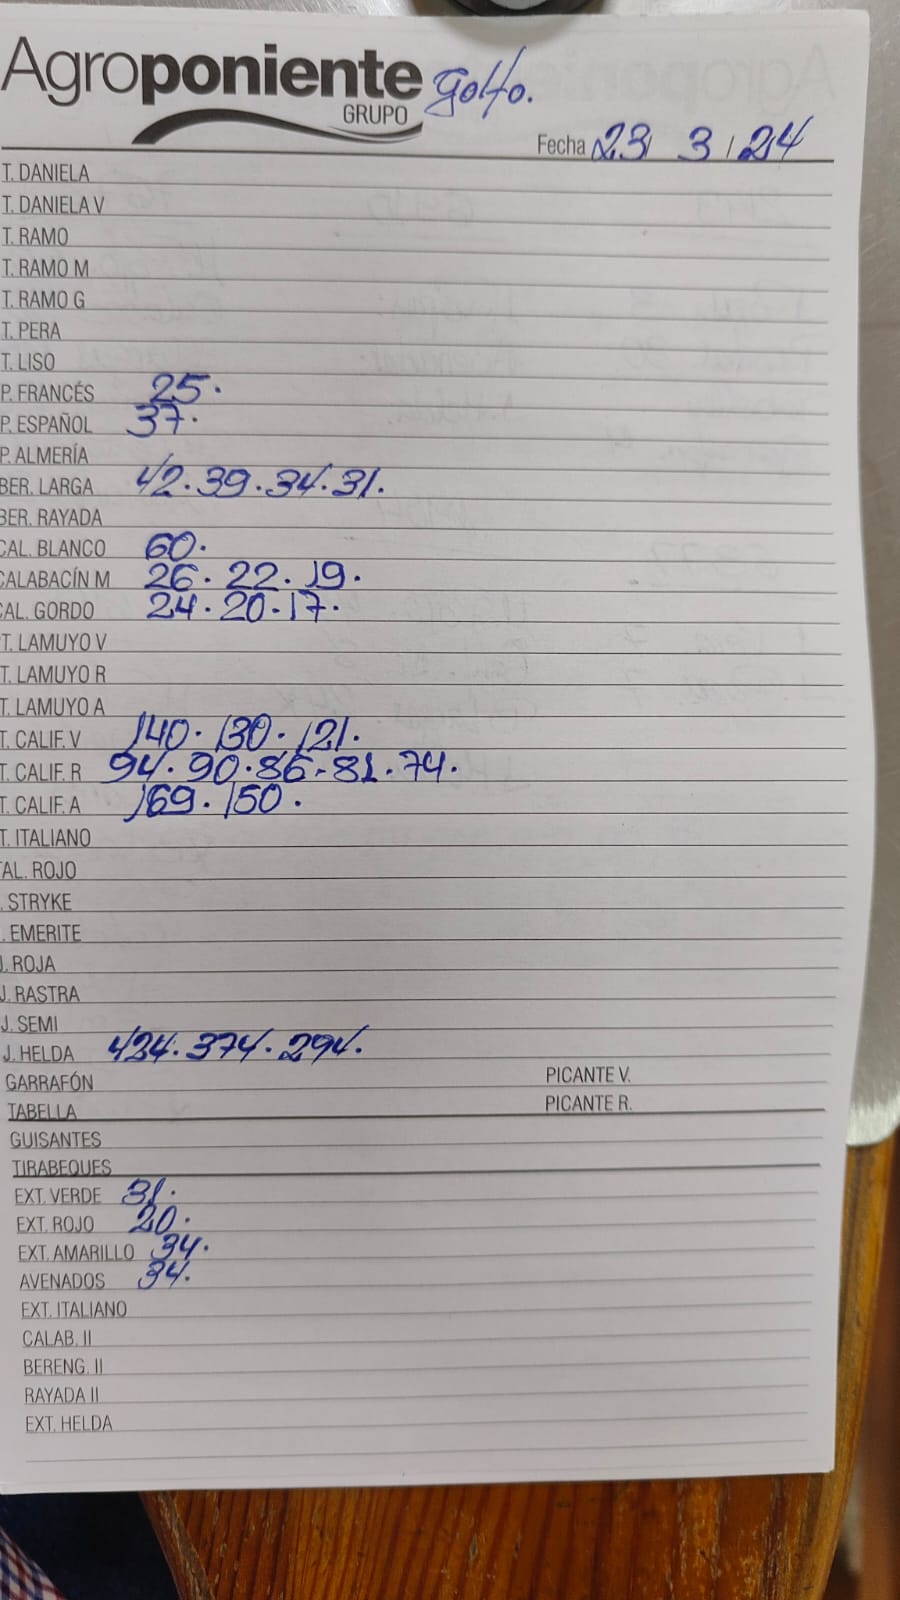 Agroponiente Golfo.
GRUPO
Fecha 23/ 3 / 24
T. DANIELA
T. DANELA V
T. RAMO
T. RAMO M
T. RAMO G
T. PERA
T. LISO
P. FRANCÉS 25.
P. ESPAÑOL 37.
P. ALMERÍA
BER. LARGA 42. 39. 34. 31.
BER. RAYADA
CAL. BLANCO 60.
CALABACÍN M 26. 22. 19.
CAL. GORDO 24. 20. 17.
PT. LAMUYO V
T. LAMUYO R
T. LAMUYO A
T. CALIF. V 140. 130. 121.
T. CALIF. R 94. 90. 86. 81. 74.
T. CALIF. A 169. 150.
T. ITALIANO
TAL. ROJO
. STRYKE
. EMERITE
J. ROJA
J. RASTRA
J. SEMI
J. HELDA 434. 374. 294.
GARRAFÓN PICANTE V.
TABELLA PICANTE R.
GUISANTES
TIRABEQUES
EXT. VERDE 31.
EXT. ROJO 20.
EXT. AMARILLO 34.
AVENADOS 34.
EXT. ITALIANO
CALAB. II
BERENG. II
RAYADA II
EXT. HELDA